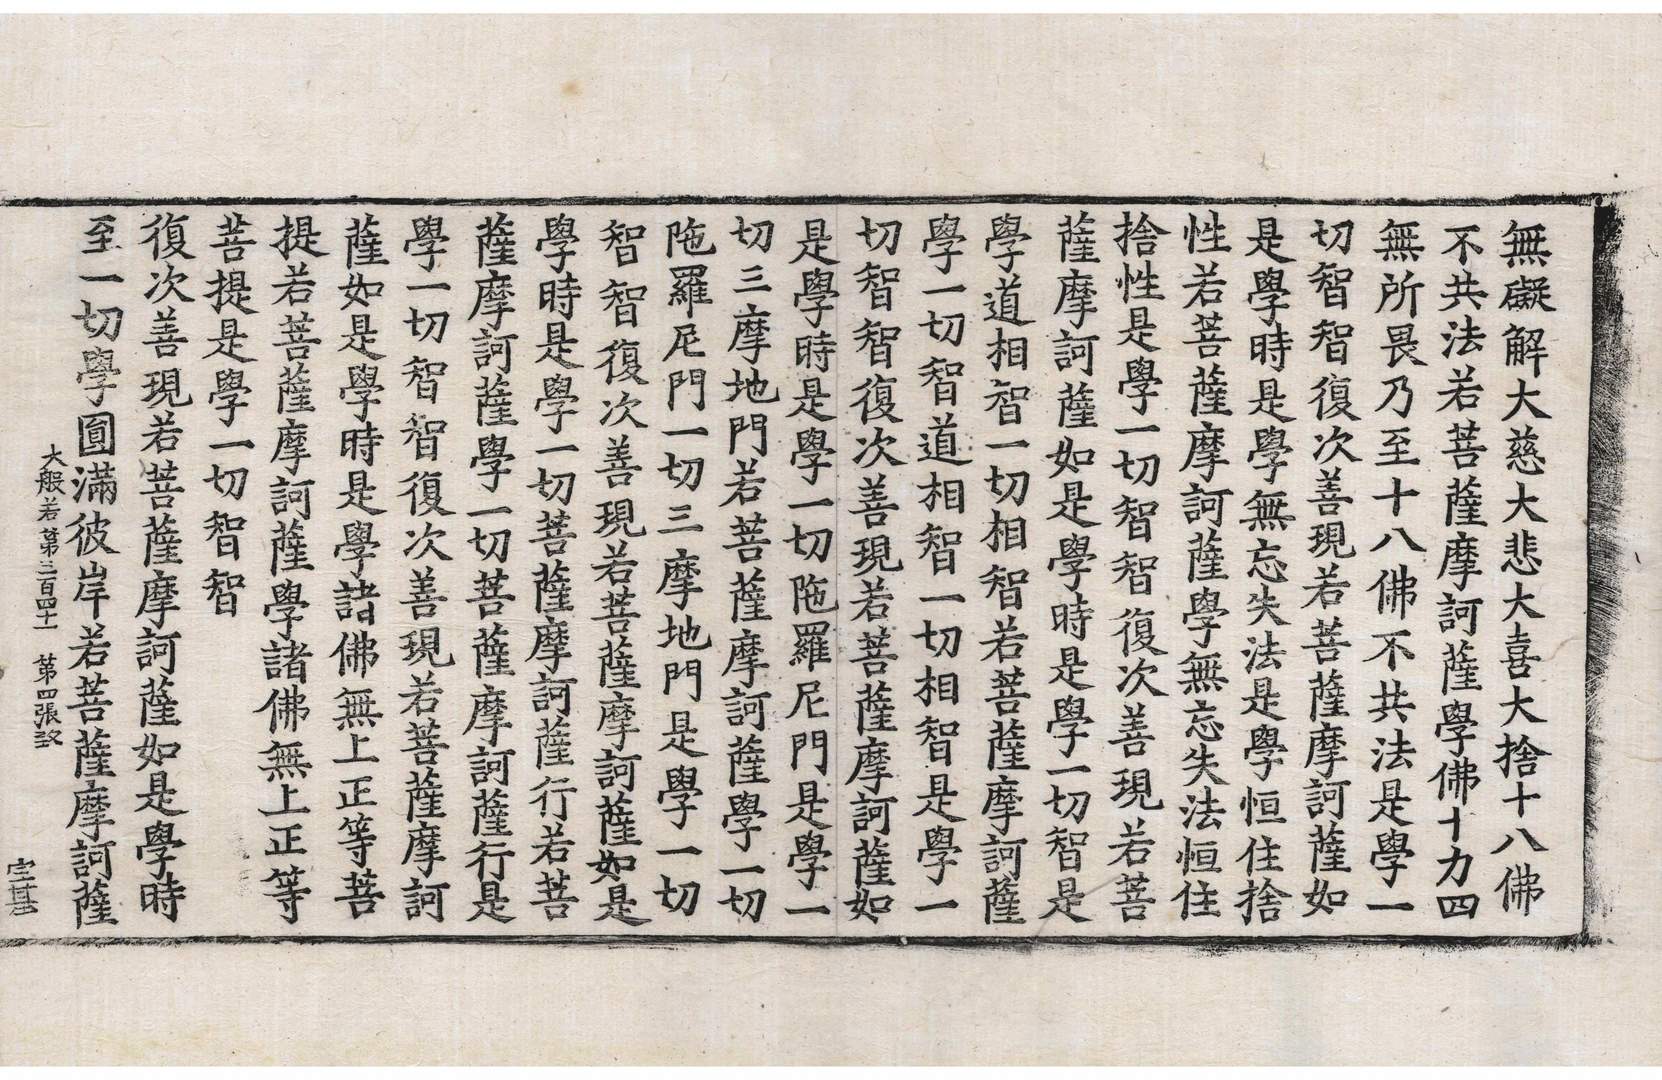 無礙解大慈大悲大喜大捨十八佛
不共法若菩薩摩訶薩學佛十力四
無所畏乃至十八佛不共法是學一
切智智復次善現若菩薩摩訶薩如
是學時是學無忘失法是學恒住捨
性若菩薩摩訶薩學無忘失法恒住
捨性是學一切智智復次善現若菩
薩摩訶薩如是學時是學一切智是
學道相智一切相智若菩薩摩訶薩
學一切智道相智一切相智是學一
切智智復次善現若菩薩摩訶薩如
是學時是學一切陁羅尼門是學一
切三摩地門若菩薩摩訶薩學一切
陁羅尼門一切三摩地門是學一切
智智復次善現若菩薩摩訶薩如是
學時是學一切菩薩摩訶薩行若菩
薩摩訶薩學一切菩薩摩訶薩行是
學一切智智復次善現若菩薩摩訶
薩如是學時是學諸佛無上正等菩
提若菩薩摩訶薩學諸佛無上正等
菩提是學一切智智
復次善現若菩薩摩訶薩如是學時
至一切學圓滿彼岸若菩薩摩訶薩
大般若第三百四十一 第四張